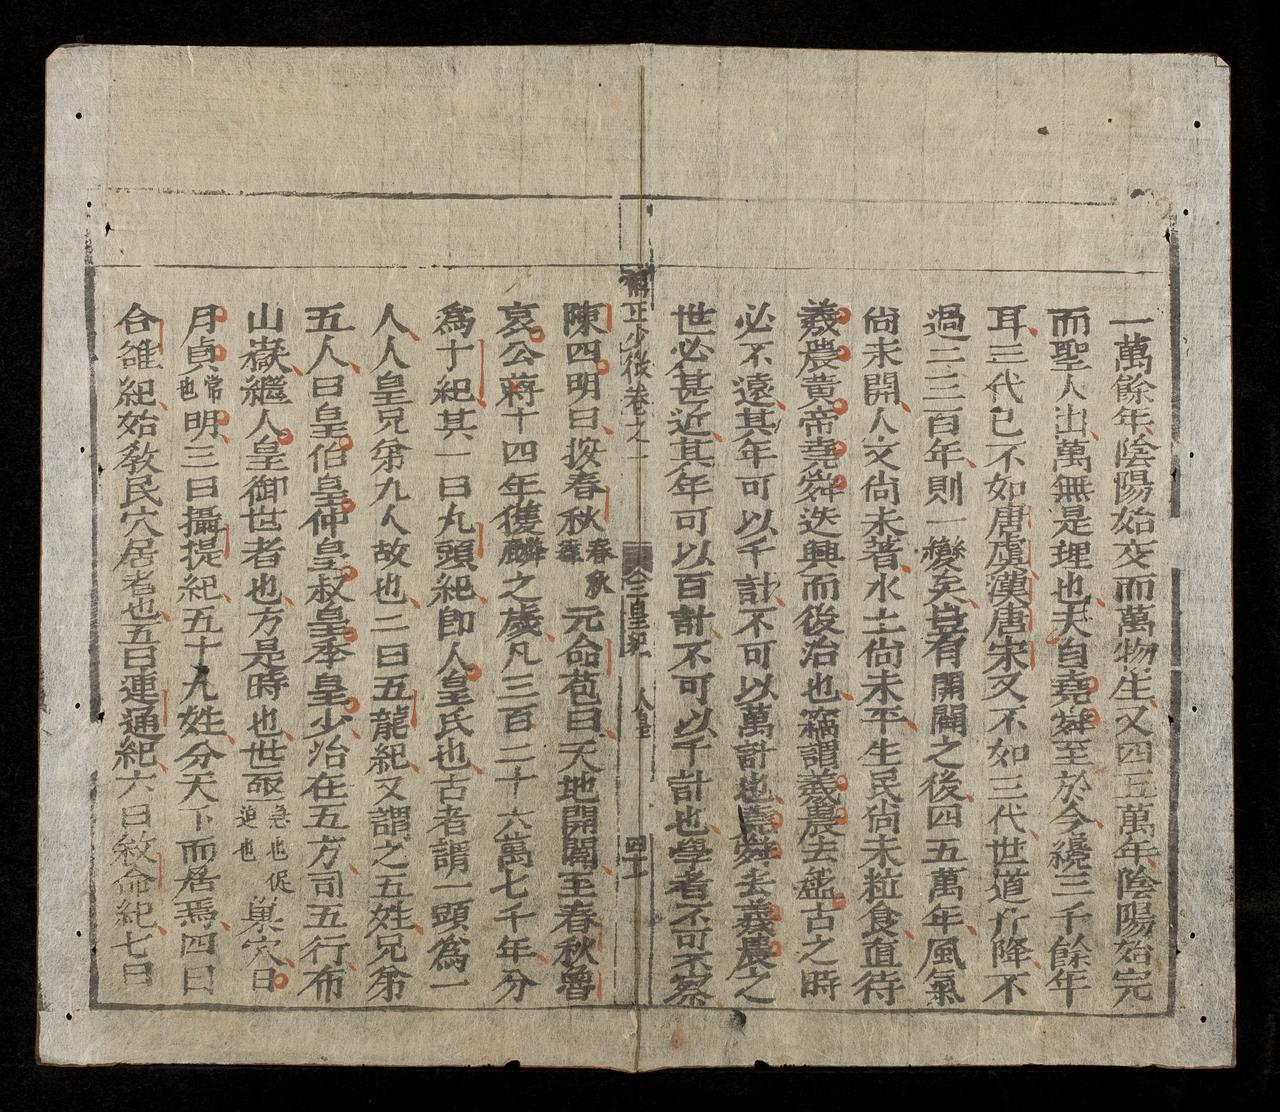 一萬餘年陰陽始交而萬物生又四五萬年陰陽始完
而聖人出萬無是理也天自堯舜至於今纔三千餘年
耳三代已不如唐虞漢唐宋又不如三代世道升降不
過二三百年則一變矣豈有開闢之後四五萬年風氣
尙未開人文尙未著水土尙未平生民尙未粒食直待
羲農黃帝堯舜迭興而後治也竊謂羲農去盤古之時
必不遠其年可以千計不可以萬計也堯舜去羲農之
世必甚近其年可以百計不可以千計也學者不可不察
補正少微卷之一 三皇紀 人皇 四十
陳四明曰按春秋春秋緯元命苞曰天地開闢至春秋魯
哀公蔣十四年獲麟之歲凡三百二十六萬七千年分
爲十紀其一曰九頭紀卽人皇氏也古者謂一頭爲一
人人皇兄弟九人故也二曰五龍紀又謂之五姓兄弟
五人曰皇伯皇仲皇叔皇季皇少治在五方司五行布
山嶽繼人皇御世者也方是時也世亟急也促迫也巢穴日
月貞常也明三曰攝提紀五十九姓分天下而居焉四曰
合雒紀始敎民穴居者也五曰連通紀六曰敘命紀七曰